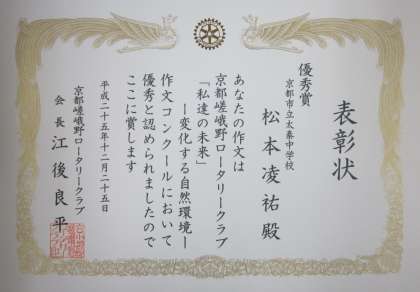 表彰状
優秀賞
京都市立太秦中学校
松本凌祐殿
あなたの作文は
京都嵯峨野ロータリークラブ
「私達の未来」
ー変化する自然環境ー
作文コンクールにおいて
優秀と認められましたので
ここに賞します
平成二十五年十二月二十五日
京都嵯峨野ロータリークラブ
会長 江後良平